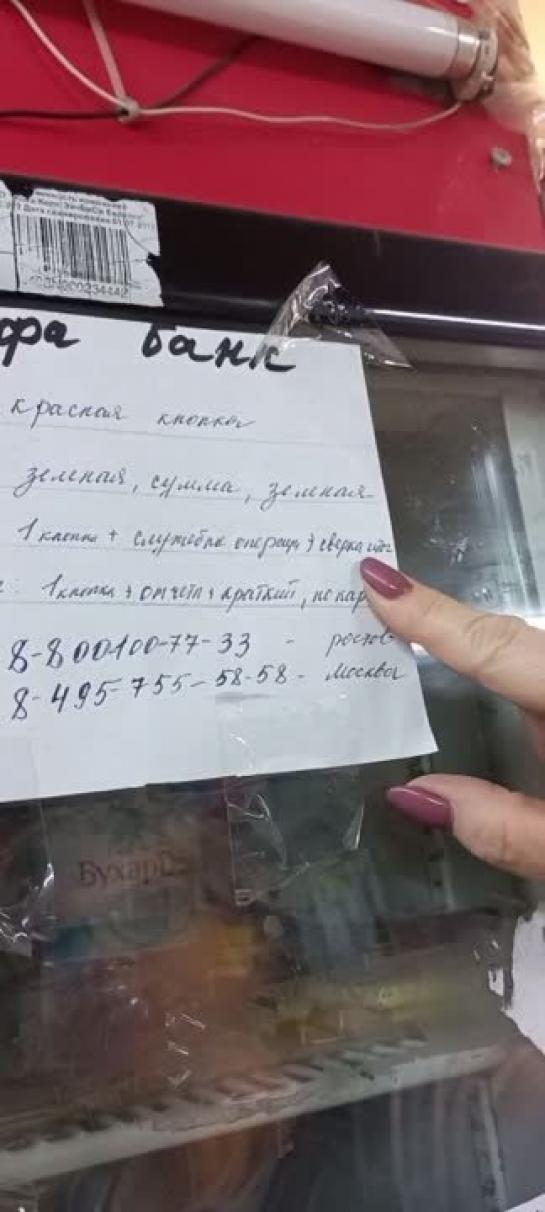 234442
фа банк
красная кнопка
зеленая, сумма, зеленая
1 кнопка + служебн операци → сверка итог
: 1 кнопка → отчеты → краткий, по кар
8-800 100-77-33 - ростов
8-495-755-58-58 - Москва
Бухар